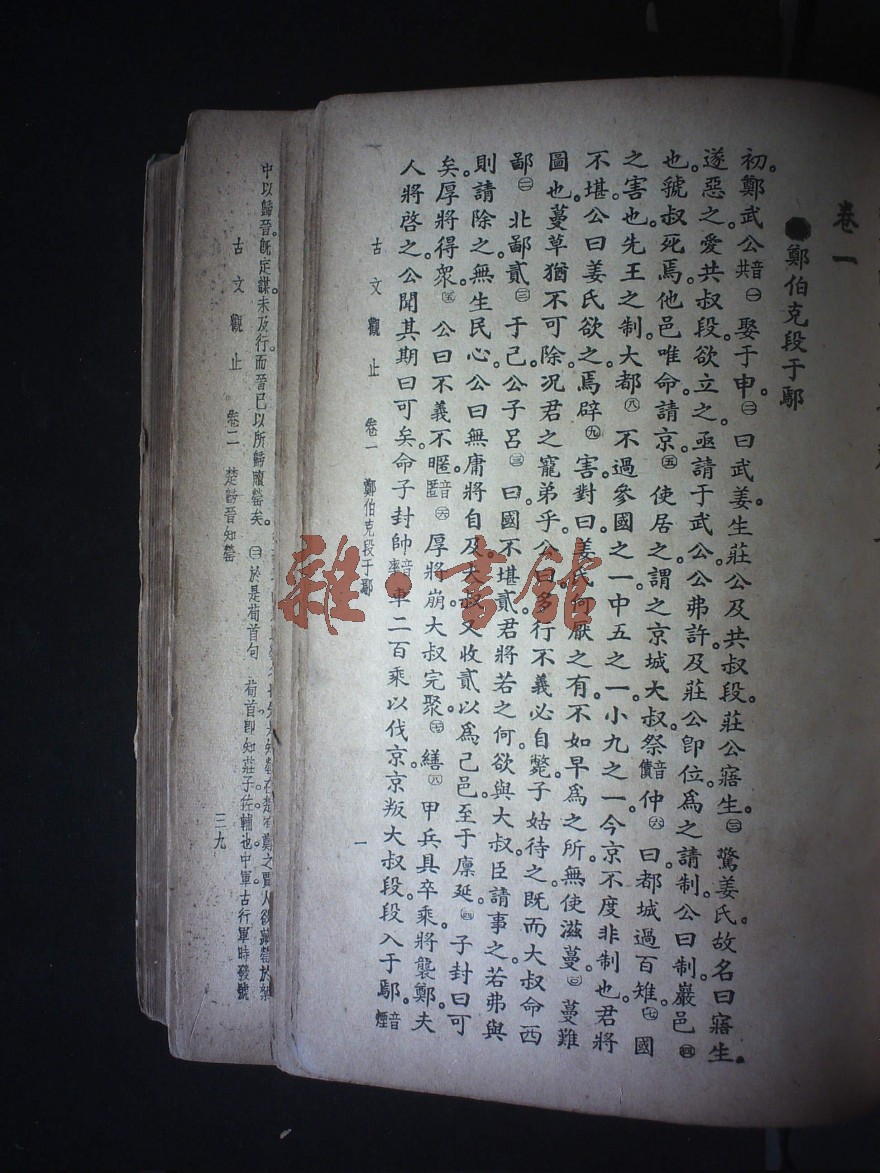 卷一
●鄭伯克段于鄢
初。鄭武公音共㊀娶于申。㊁曰武姜。生莊公及共叔段。莊公寤生。㊂驚姜氏。故名曰寤生。
遂惡之。愛共叔段。欲立之。亟請于武公。公弗許。及莊公卽位。爲之請制。公曰。制巖邑㊃
也。虢叔死焉。他邑唯命。請京。㊄使居之。謂之京城大叔。祭音債仲㊅曰。都城過百雉。㊆國
之害也。先王之制。大都㊇不過參國之一。中五之一。小九之一。今京不度。非制也。君將
不堪。公曰。姜氏欲之。焉辟㊈害。對曰。姜氏何厭之有。不如早爲之所。無使滋蔓。㊀蔓難
圖也。蔓草猶不可除。況君之寵弟乎。公曰。多行不義必自斃。子姑待之。旣而大叔命西
鄙㊁北鄙貳㊂于己。公子呂㊂曰。國不堪貳。君將若之何。欲與大叔。臣請事之。若弗與
則請除之。無生民心。公曰。無庸。將自及。大叔又收貳以爲己邑。至于廩延。㊃子封曰。可
矣。厚將得衆。㊄公曰。不義不暱音匿㊅厚將崩。大叔完聚。㊆繕㊇甲兵。具卒乘。將襲鄭。夫
人將啓之。公聞其期曰。可矣。命子封帥音率車二百乘以伐京。京叛大叔段。段入于鄢。音煙
古文觀止 卷一 鄭伯克段于鄢 一
中以歸晉。旣定謀。未及行。而晉已以所歸贖罃矣。㊂於是荀首句 荀首卽知莊子。佐輔也。中軍古行軍時發號
古文觀止 卷二 楚歸晉知罃 三九
雜·書館